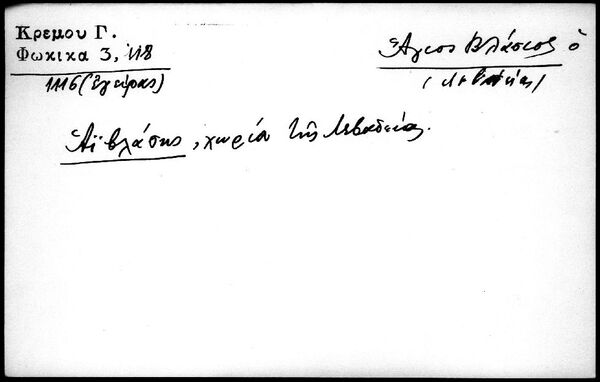 Κρεμου Γ.
Φωκικα 3, 118
1116 (Ἐγείρας)
Ἅγιος Βλάσιος ὁ
(Λεβαδείας)
Ἁϊ Βλάσης, χωρίον τῆς Λεβαδείας.